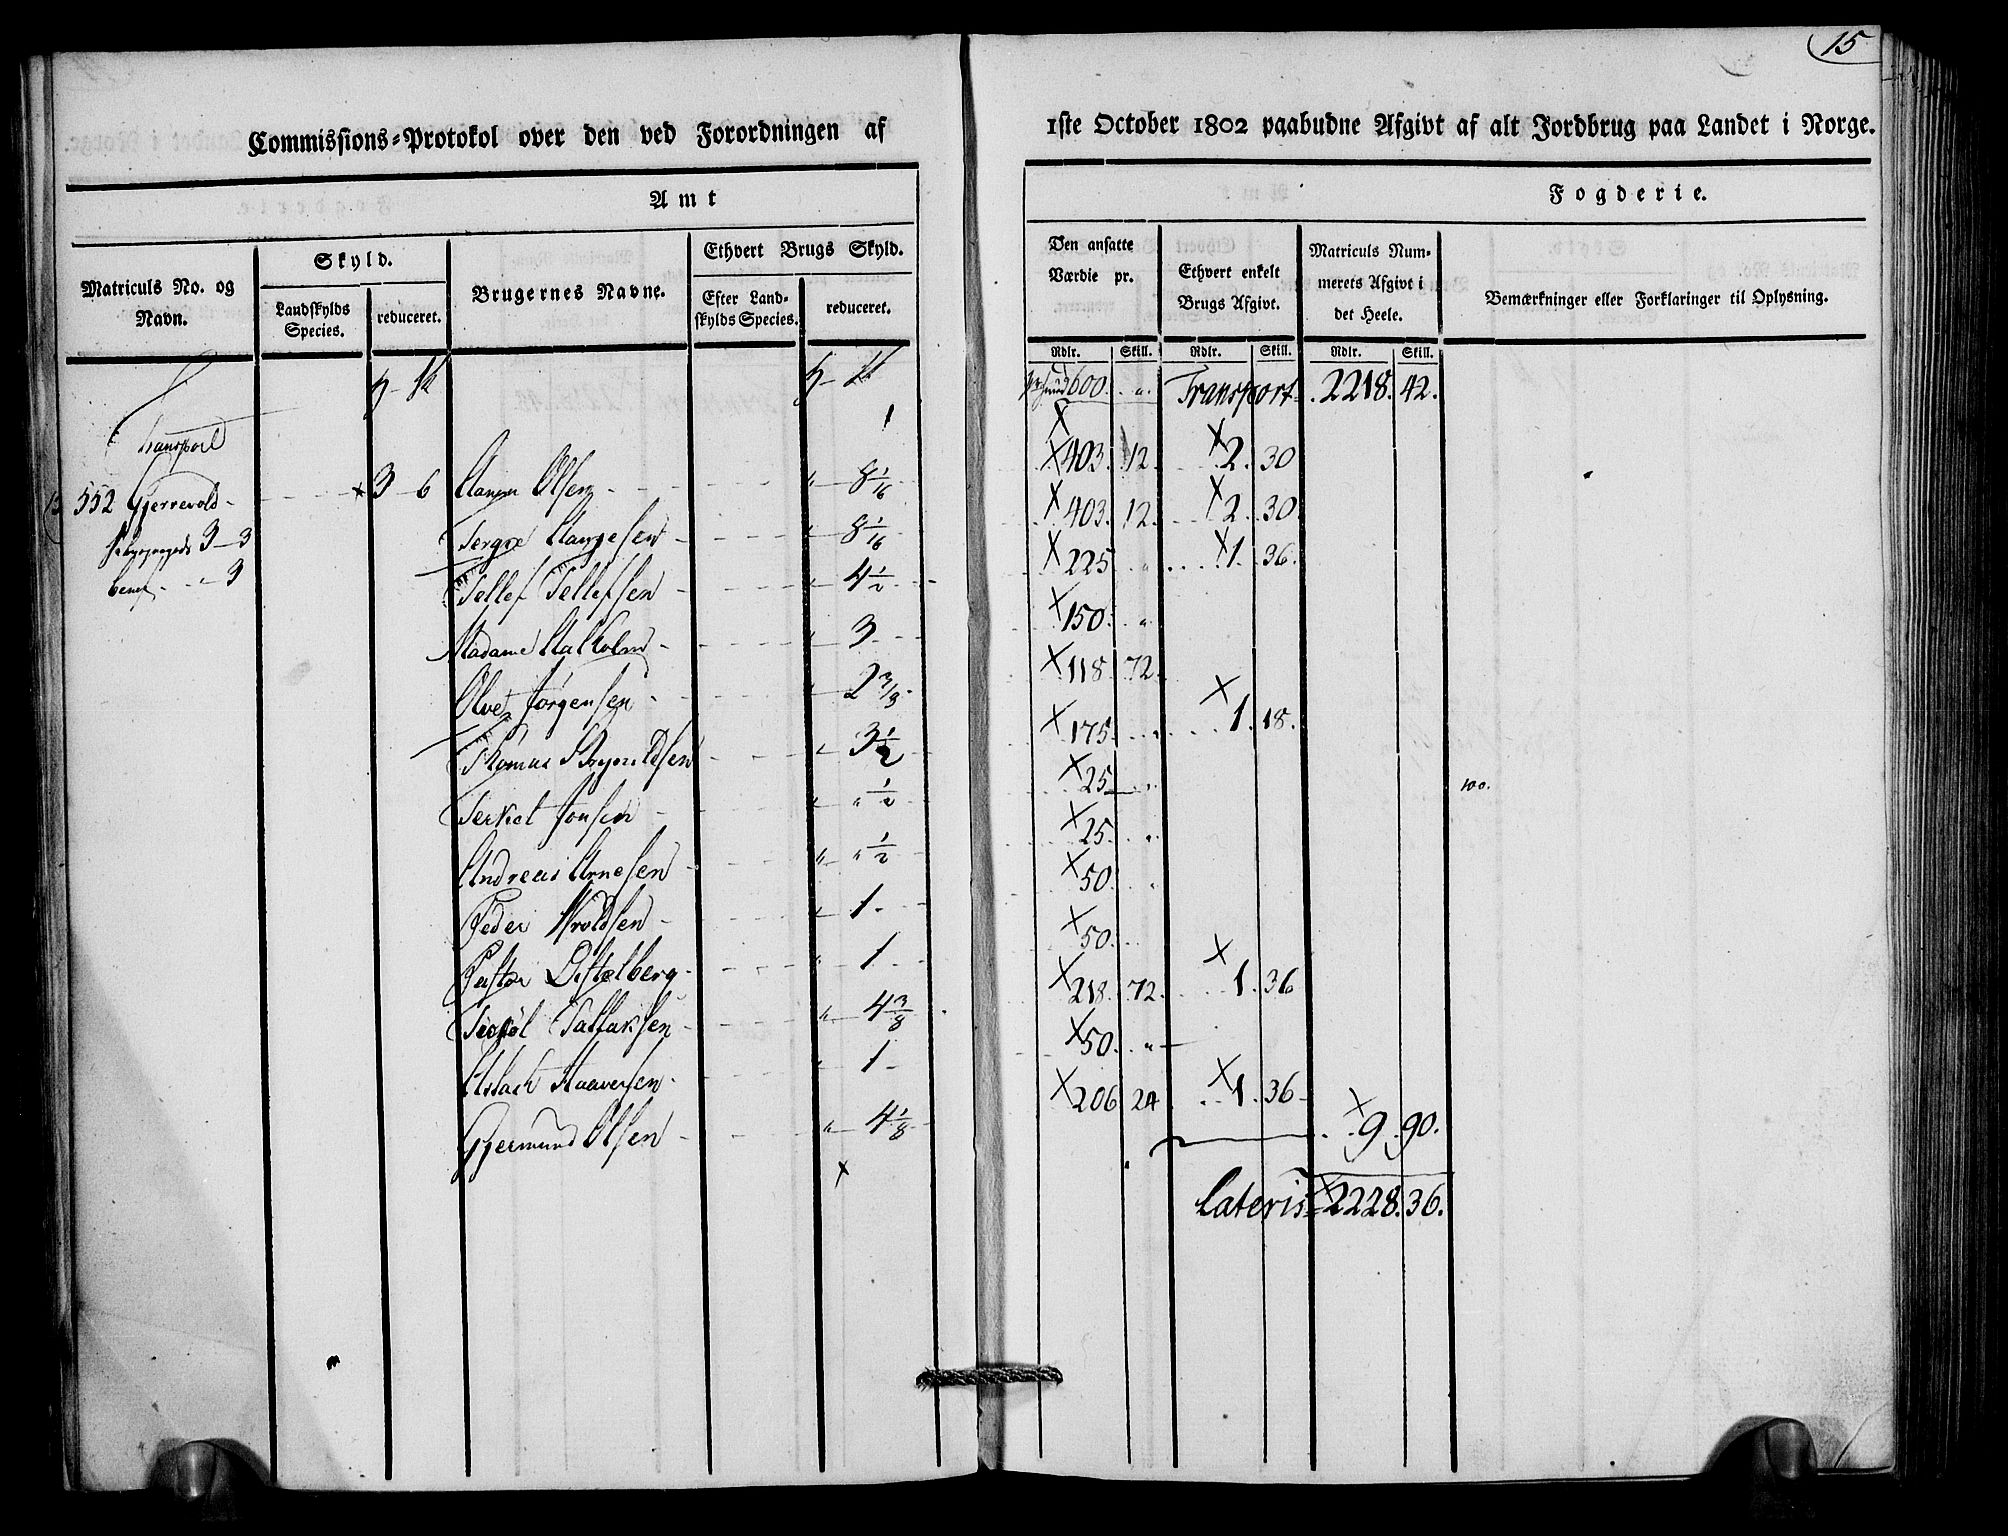 15
Commissions-Protokol over den ved Forordningen af 1ste October 1802 paabudne Afgivt af alt Jordbrug paa Landet i Norge.
Amt
Fogderie.
Matriculs No. og Navn.
Skyld.
Landskylds Species.
reduceret.
Brugernes Navne.
Ethvert Brugs Skyld.
Efter Landskylds Species.
reduceret.
Den ansatte Værdie pr.
Ethvert enkelt Brugs Afgivt.
Matriculs Nummerets Afgivt i det Heele.
Bemærkninger eller Forklaringer til Oplysning.
Rdlr. Skill. Rdlr. Skill. Rdlr. Skill.
Transport
600. " Transport 2218. 42.
552 Gjerrevold 3 6 Olsen " 8 1/16 403. 12. 2. 30
3 3
benef. " 3
Tergie Aanyesen " 8 1/16 403. 12. 2. 30
Tellef Tellefsen " 4 1/2 225 " 1. 36.
Madame " 3 150. "
Olve Jørgensen " 2 3/8 118. 72.
Thomas " 3 1/2 175. " 1. 18.
Terkel Jonsen " " 1/2 25 " 100.
Andreas Arnesen " " 1/2 25. "
Peder " 1 50. "
Pastor " 1 50.
Tallaksen " 4 3/8 218. 72. 1. 36
Aslach Haaversen " 1 50. "
Gjermund Olsen " 4 1/8 206 24 1. 36
9. 90.
Lateris 2228. 36.